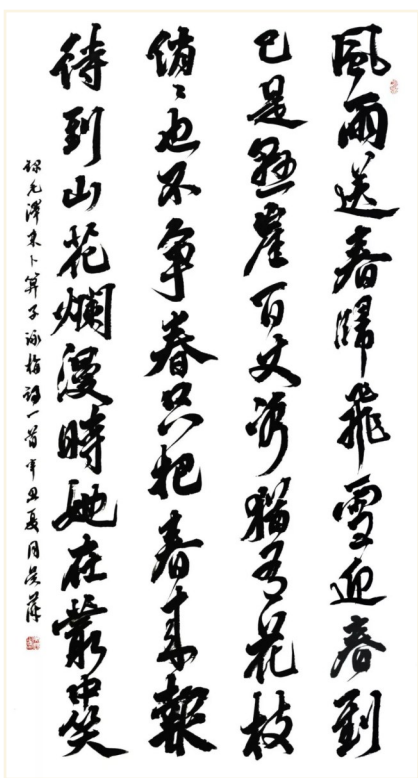 風雨送春歸飛雪迎春到
已是懸崖百丈冰猶有花枝
俏〻也不争春只把春来報
待到山花爛漫時她在叢中笑
録毛澤東卜算子詠梅詞一首辛丑夏月吴